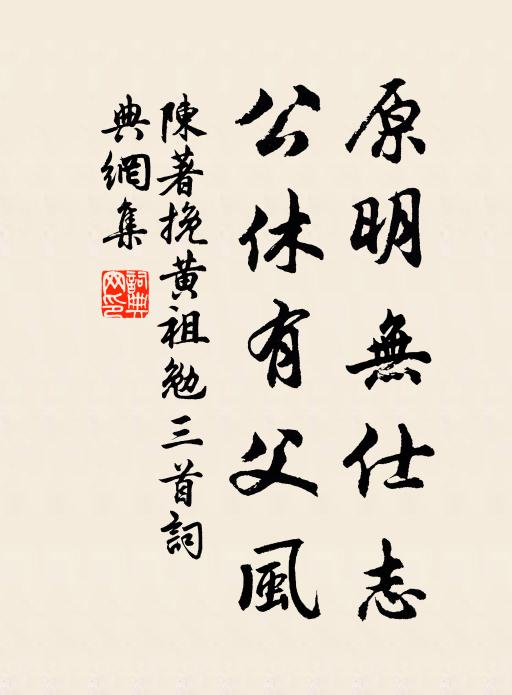 原明無仕志
公休有父風
陳著挽黃祖勉三首詞
典網集
詞典網印